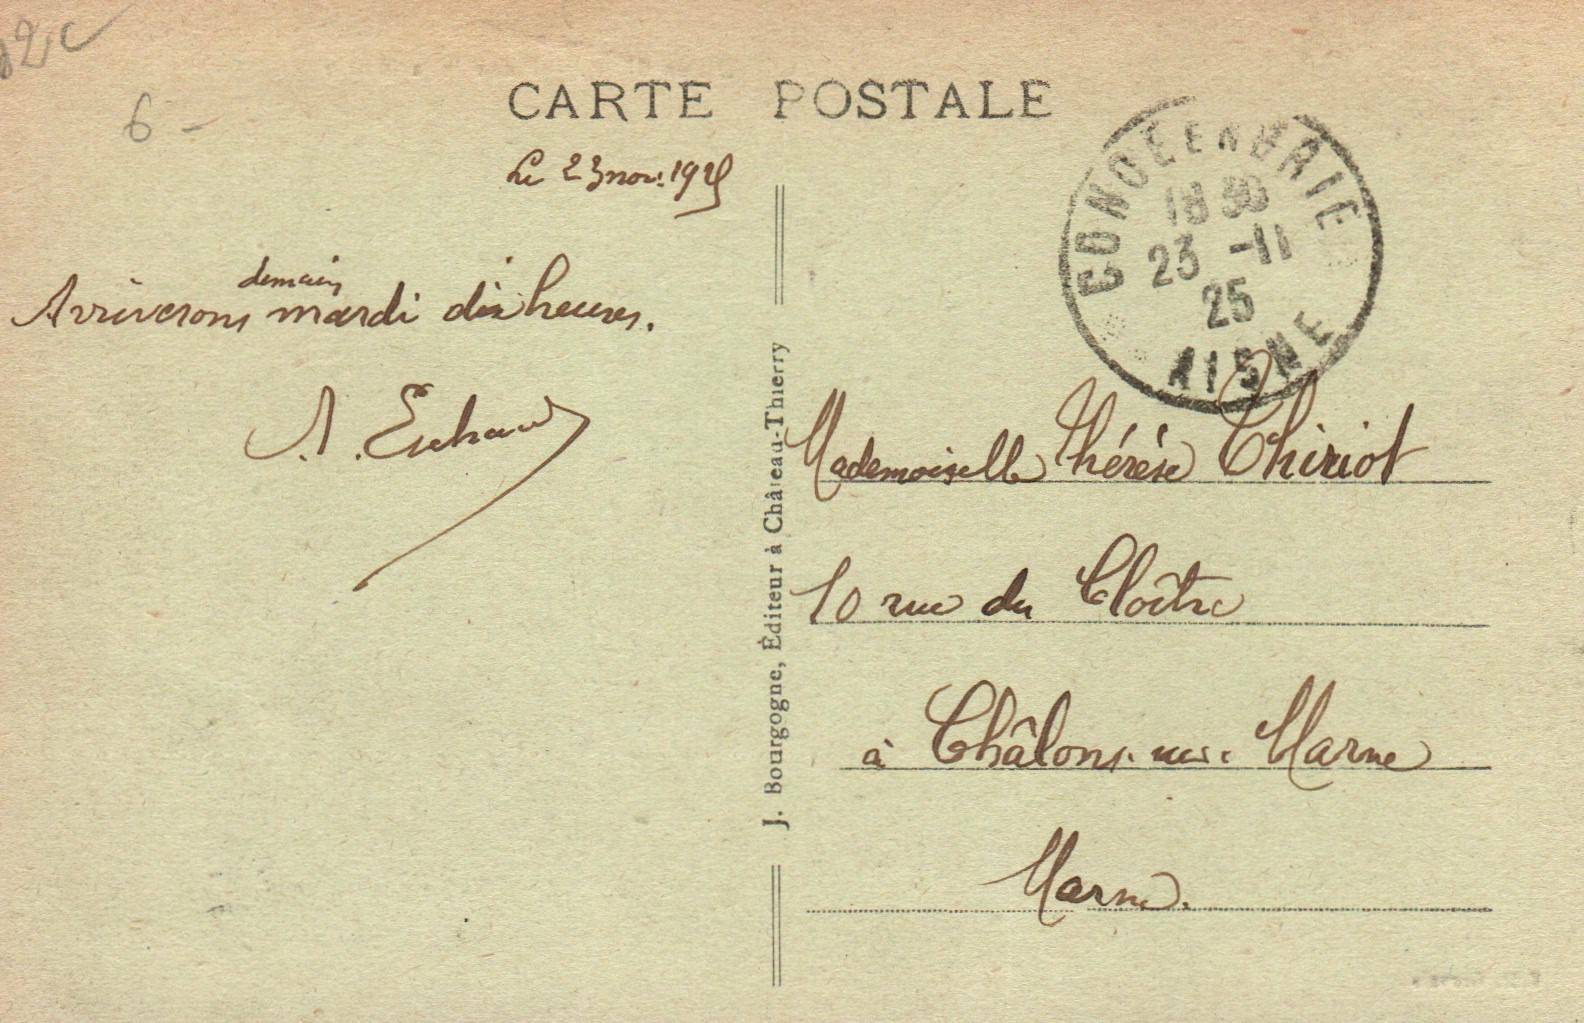 6 -
CARTE POSTALE
Le 23 nov. 1925
demain
Arriverons mardi dix heures.
A.
CONDÉ EN BRIE
18 30
23 -11
25
AISNE
J. Bourgogne, Éditeur à Château-Thierry
Mademoiselle Thérèse Thiriot
10 rue du Cloître
à Châlons-sur-Marne
Marne.